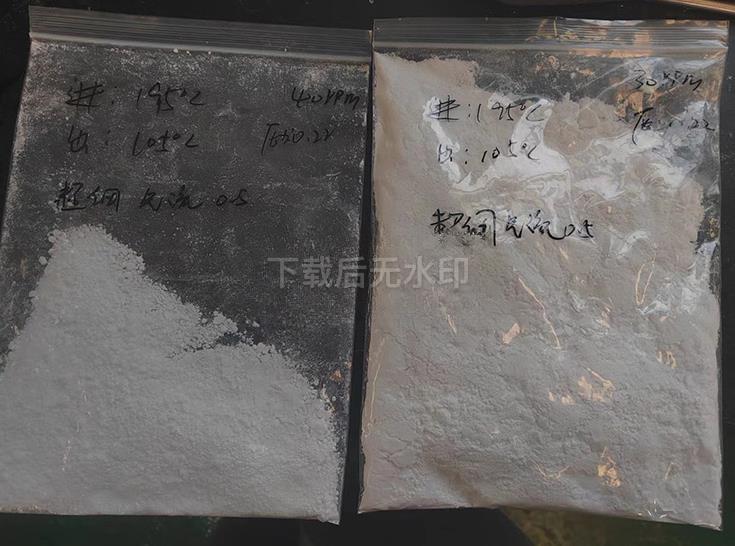 进：195℃ 40rpm
出：105℃ 压力0.22
超细 气流 0.5
进：195℃ 30rpm
出：105℃ 0.22
超细 气流 0.5
下载后无水印